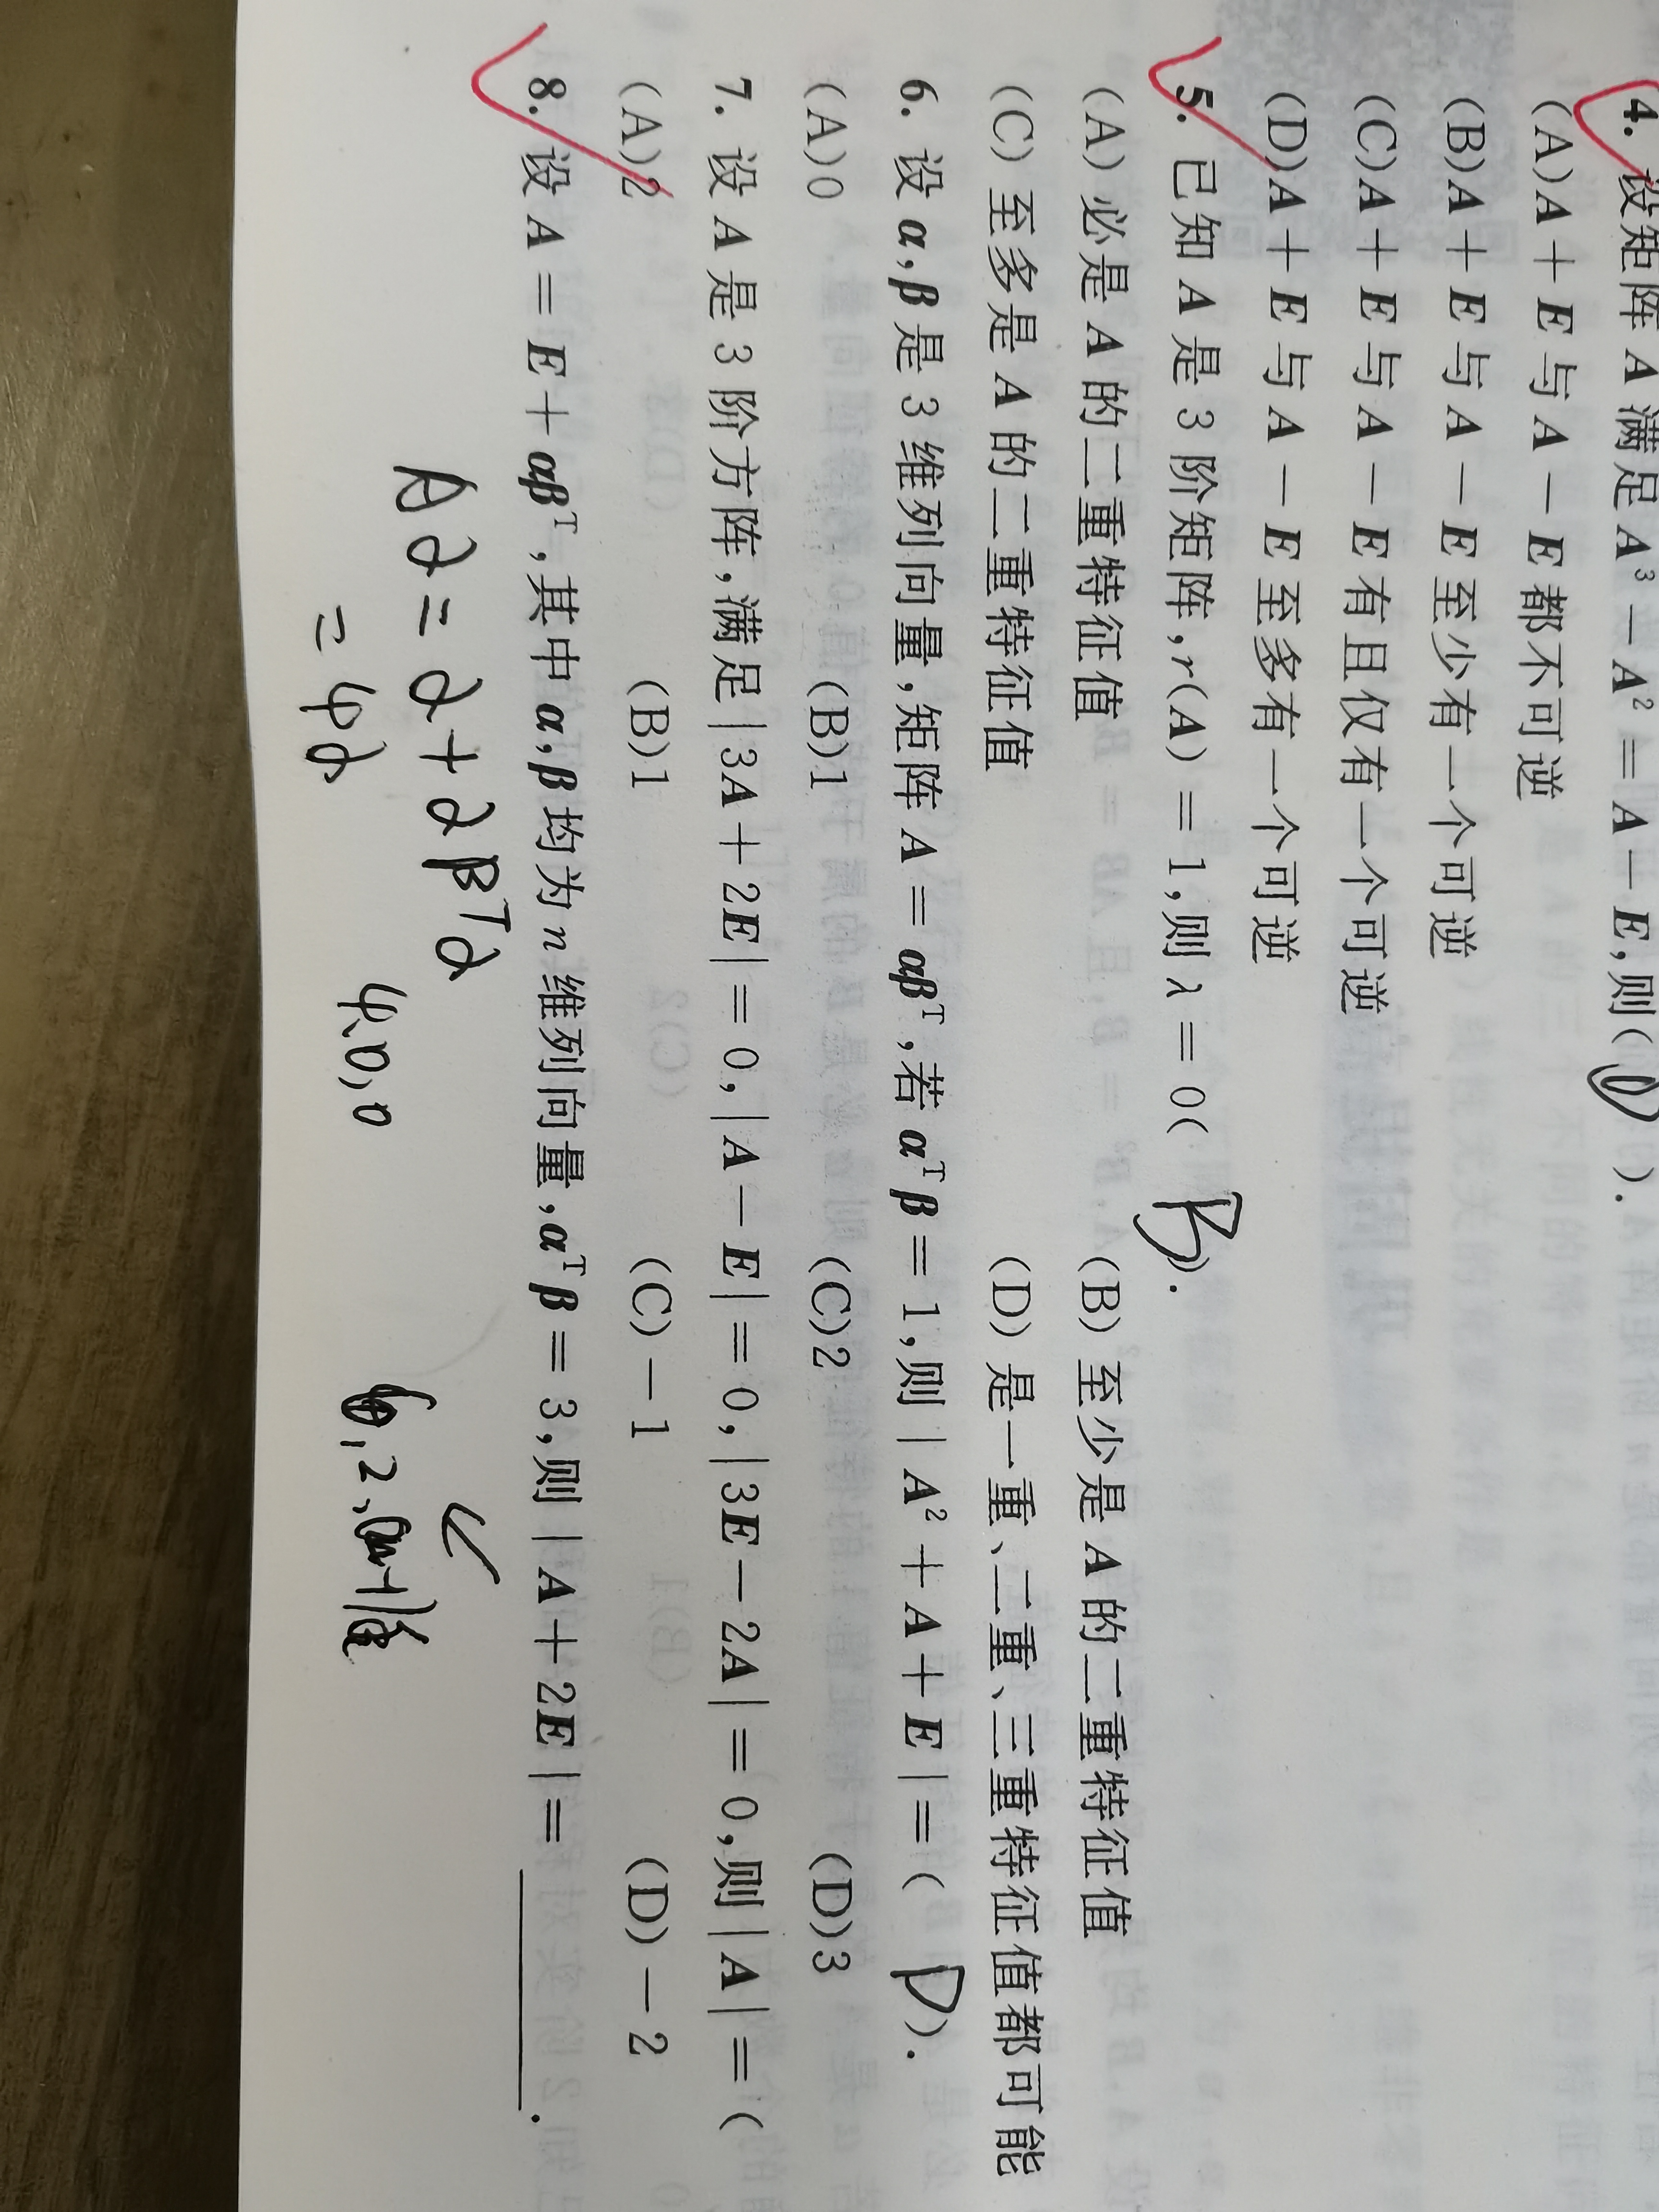 4. 设矩阵 A 满足 A³ − A² = A − E, 则( D ).
(A)A + E 与 A − E 都不可逆
(B)A + E 与 A − E 至少有一个可逆
(C)A + E 与 A − E 有且仅有一个可逆
(D)A + E 与 A − E 至多有一个可逆
5. 已知 A 是 3 阶矩阵, r(A) = 1, 则 λ = 0( B ).
(A) 必是 A 的二重特征值 (B) 至少是 A 的二重特征值
(C) 至多是 A 的二重特征值 (D) 是一重、二重、三重特征值都可能
6. 设 α, β 是 3 维列向量, 矩阵 A = αβᵀ, 若 αᵀβ = 1, 则 | A² + A + E | = ( D ).
(A)0 (B)1 (C)2 (D)3
7. 设 A 是 3 阶方阵, 满足 | 3A + 2E | = 0, | A − E | = 0, | 3E − 2A | = 0, 则 | A | = (
(A)2 (B)1 (C) − 1 (D) − 2
8. 设 A = E + αβᵀ, 其中 α, β 均为 n 维列向量, αᵀβ = 3, 则 | A + 2E | = ______.
Aα = α + αβᵀα
= 4α 4, 0, 0 6, 2,